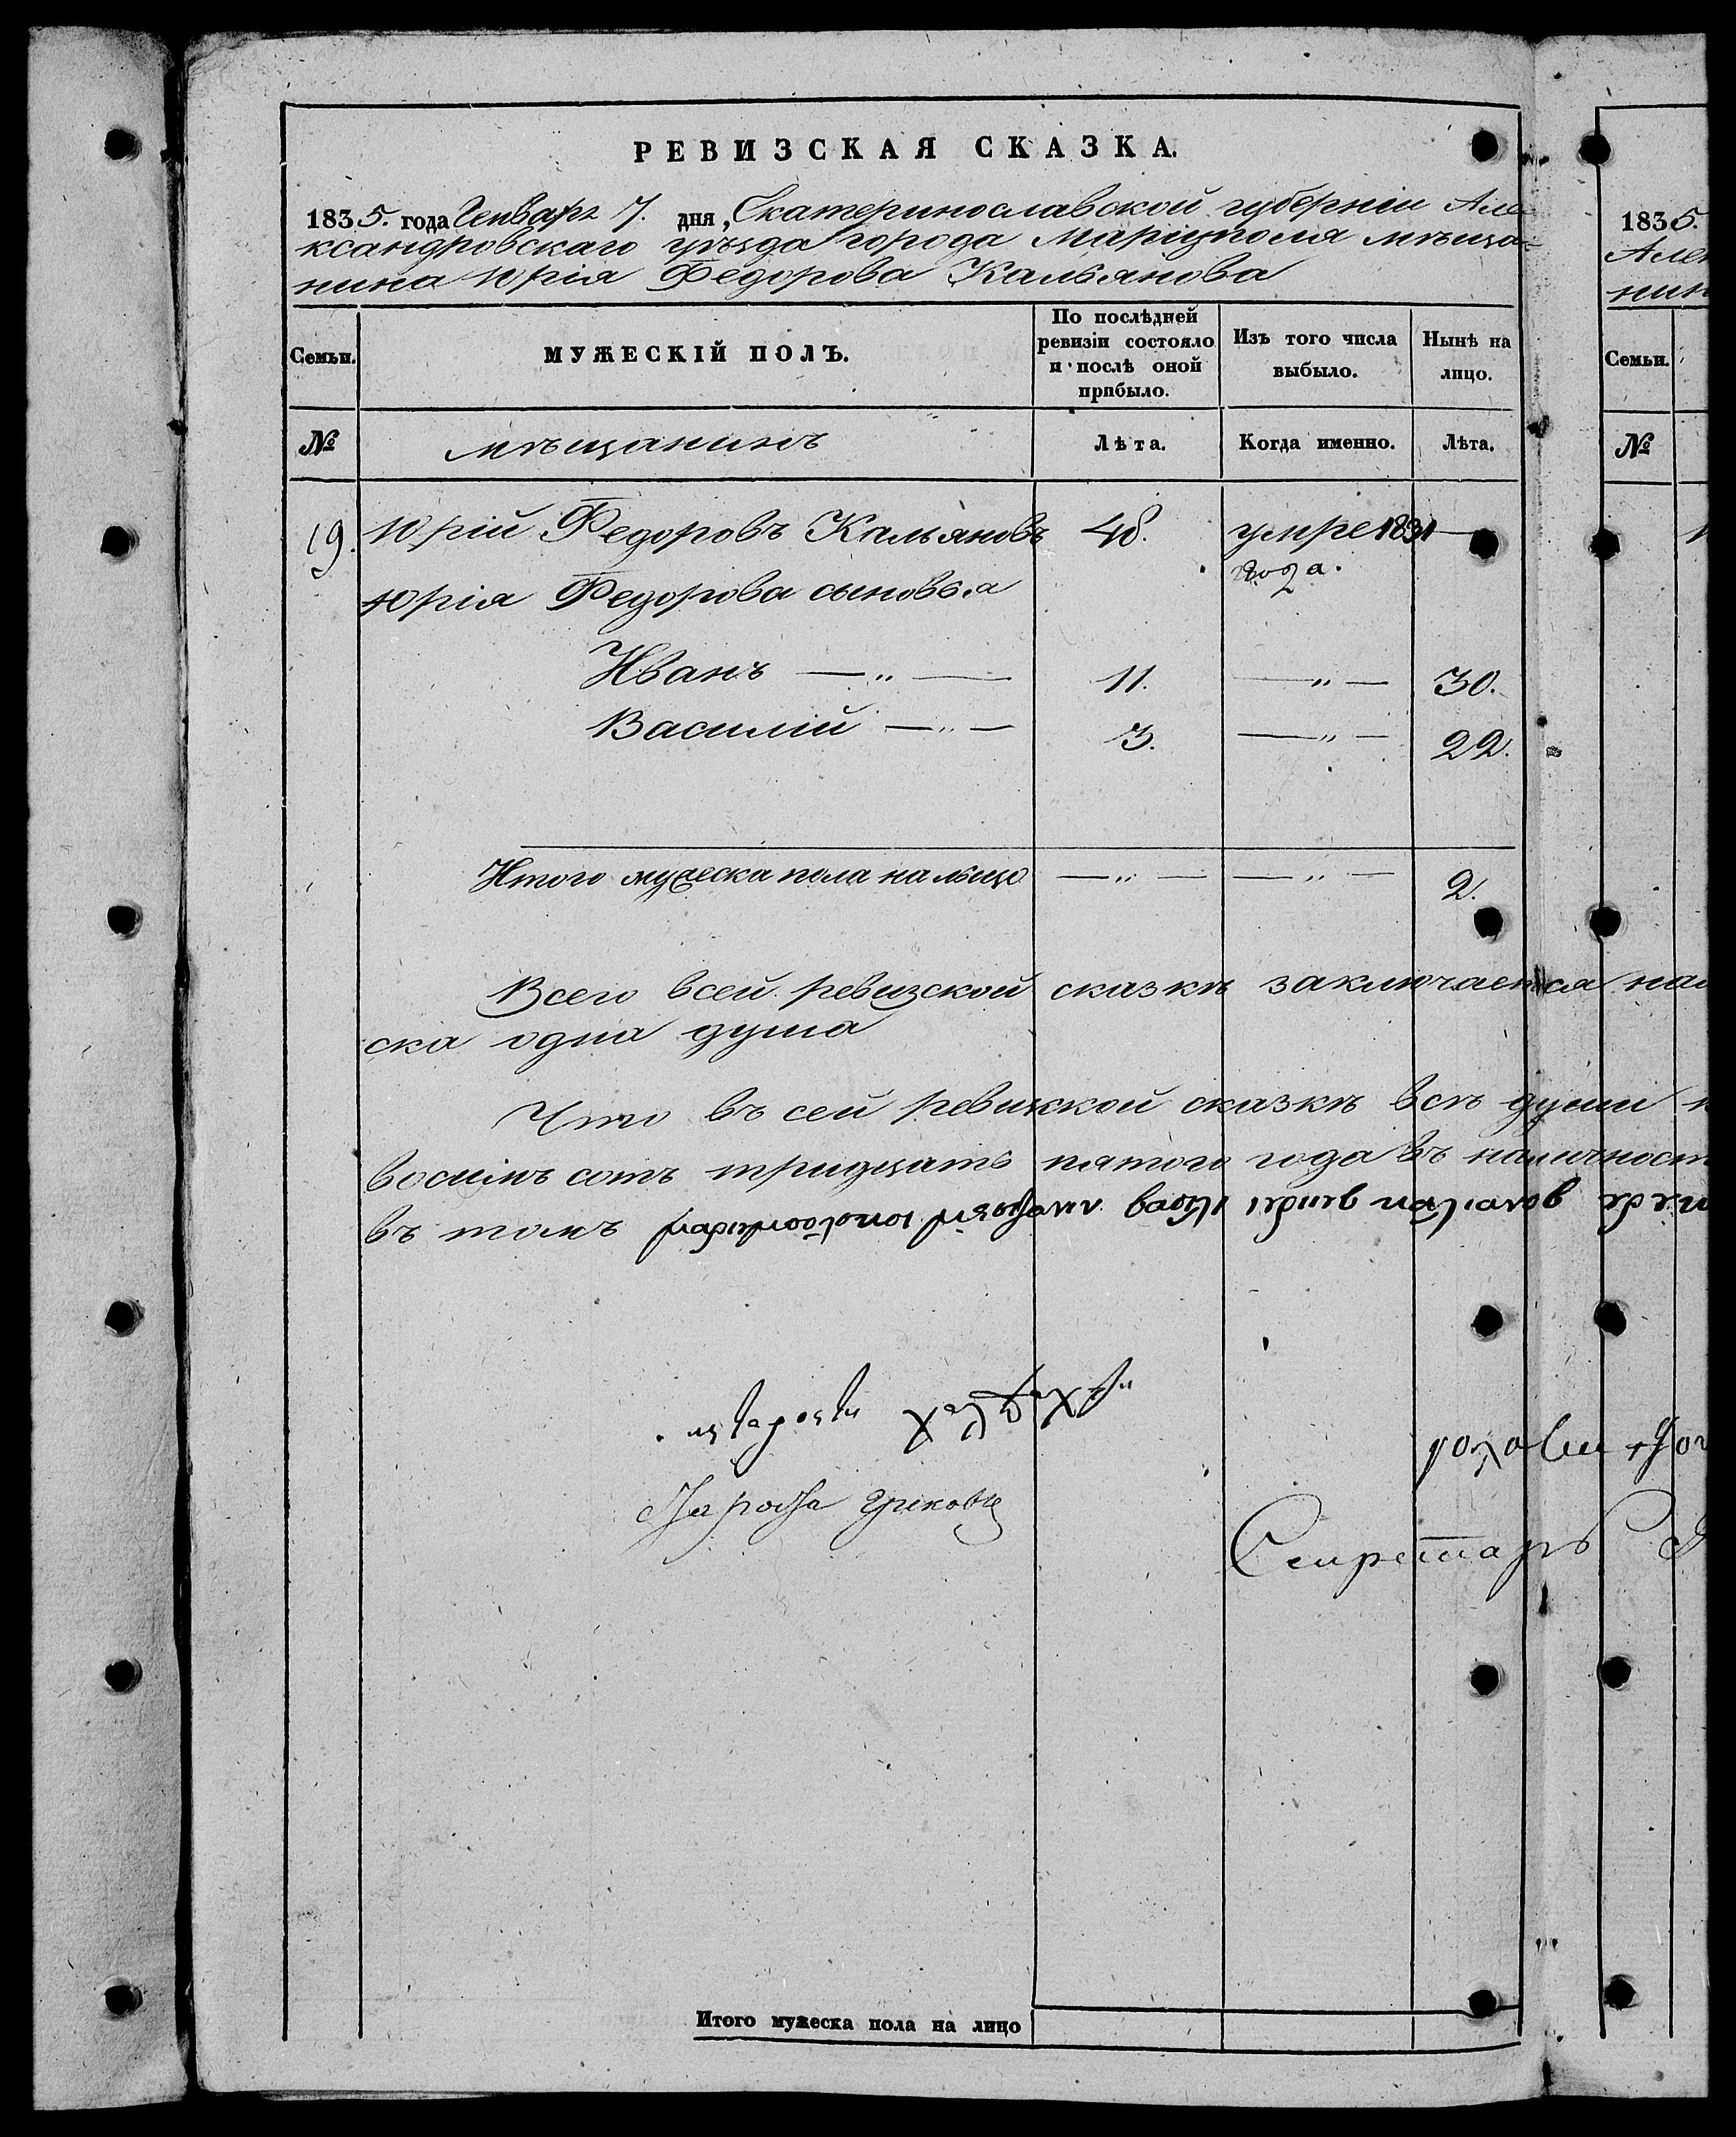 РЕВИЗСКАЯ СКАЗКА.
1835. года Генваря 7. дня, Екатеринославской губерніи Але-
ксандровскаго уѣзда города Маріуполя мѣща-
нина Юрія Федорова Кальянова
Семьи. МУЖЕСКІЙ ПОЛЪ. По послѣдней ревизіи состояло и послѣ оной прибыло. Изъ того числа выбыло. Нынѣ на лицо.
№ мѣщанинъ Лѣта. Когда именно. Лѣта.
19. Юрій Федоровъ Кальяновъ 48. умре 1831
года.
Юрія Федорова сыновья
Иванъ — „ — 11. — „ — 30.
Василій — „ — 3. — „ — 22.
Итого мужеска пола на лицо — „ — — „ — 2.
Всего всей ревизской сказкѣ заключается
ска одна душа
Что въ сей ревизской сказкѣ всѣ души
восимъ сотъ тридцать пятого года въ
въ томъ
Староста
Секретарь
Итого мужеска пола на лицо
1835.
Але
нин
Семьи.
№